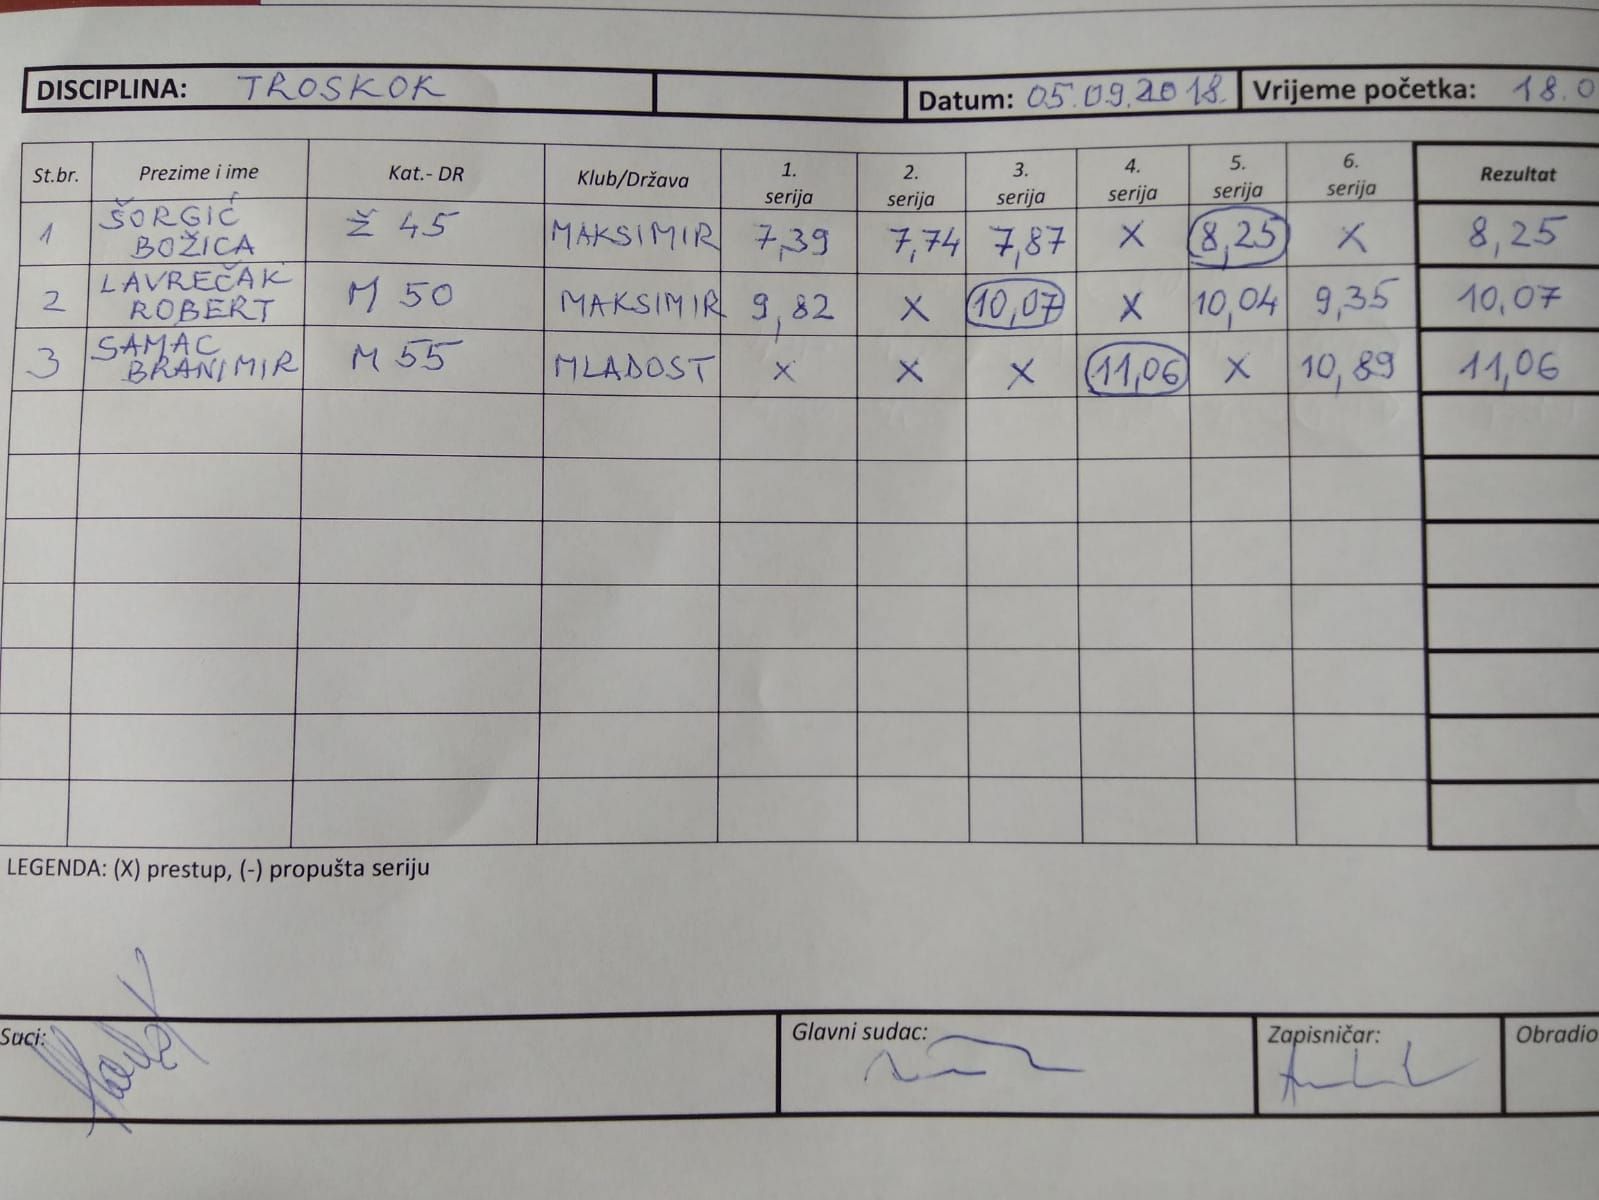 DISCIPLINA: TROSKOK Datum: 05.09.2018. Vrijeme početka: 18.0
St.br. Prezime i ime Kat.- DR Klub/Država 1. serija 2. serija 3. serija 4. serija 5. serija 6. serija Rezultat
1 ŠORGIĆ BOŽICA Ž 45 MAKSIMIR 7,39 7,74 7,87 X 8,25 X 8,25
2 LAVREČAK ROBERT M 50 MAKSIMIR 9,82 X 10,07 X 10,04 9,35 10,07
3 SAMAC BRANIMIR M 55 MLADOST X X X 11,06 X 10,89 11,06
LEGENDA: (X) prestup, (-) propušta seriju
Suci: Glavni sudac: Zapisničar: Obradio